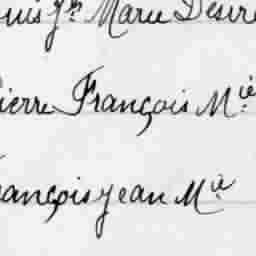 ouis Jn Marie Désiré
ierre François Mie
rançois Jean Mie